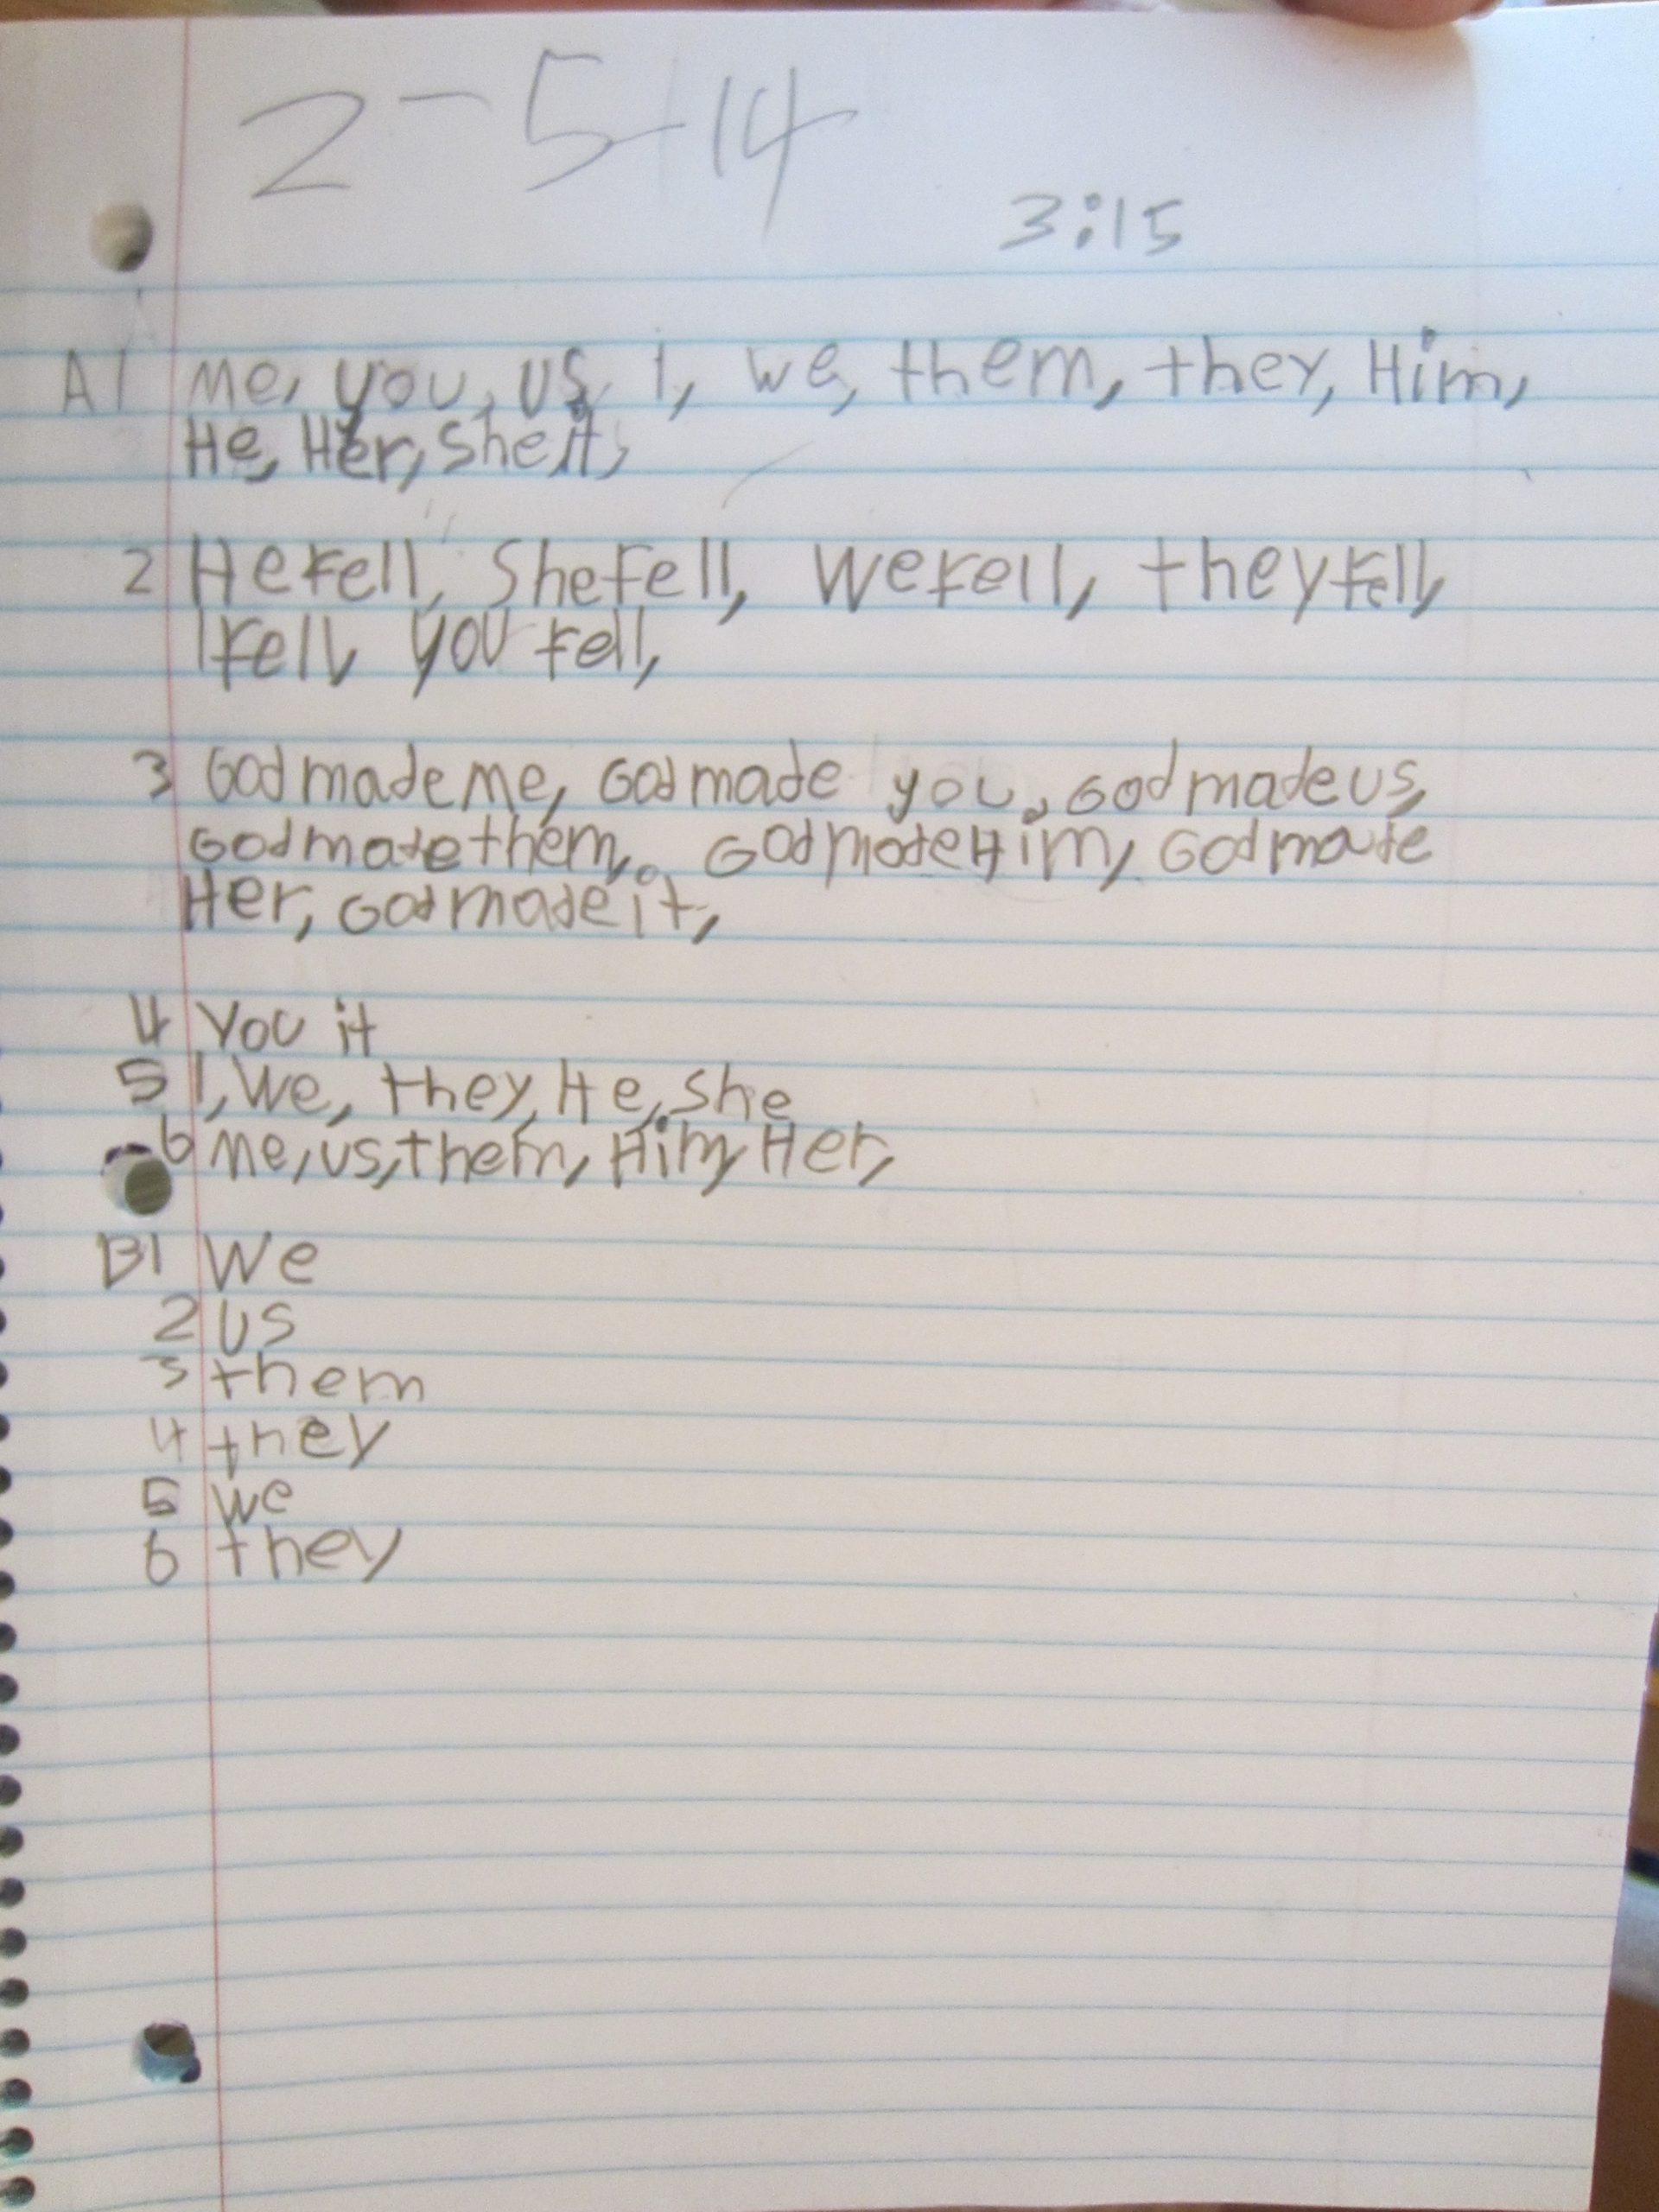 2-5-14
3:15
A1 Me, you, us, I, we, them, they, Him,
He, Her, She, it,
2 He fell, She fell, We fell, they fell,
I fell, you fell,
3 God made me, God made you, God made us,
God made them, God made Him, God made
Her, God made it,
4 You it
5 I, We, they, He, She
6 Me, us, them, Him, Her,
B1 We
2 us
3 them
4 they
5 we
6 they